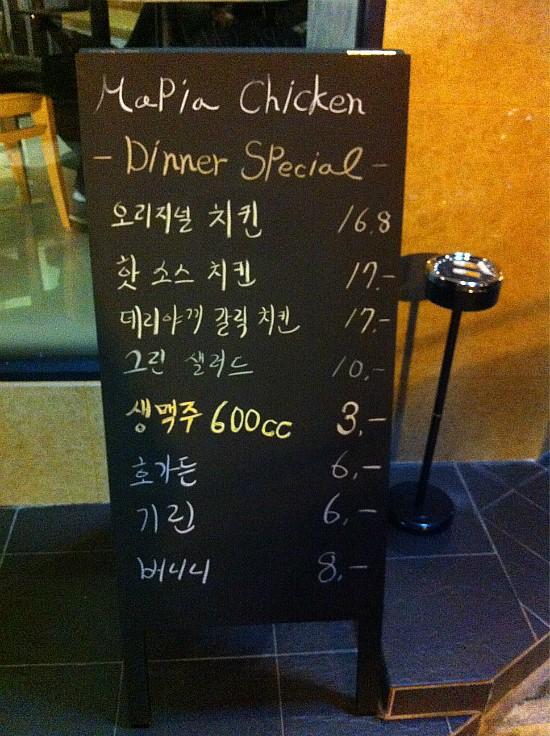 MaPia Chicken
- Dinner Special -
오리지널 치킨 16.8
핫 소스 치킨 17.-
데리야끼 갈릭 치킨 17.-
그린 샐러드 10.-
생맥주 600cc 3.-
호가든 6.-
기린 6.-
버니니 8.-